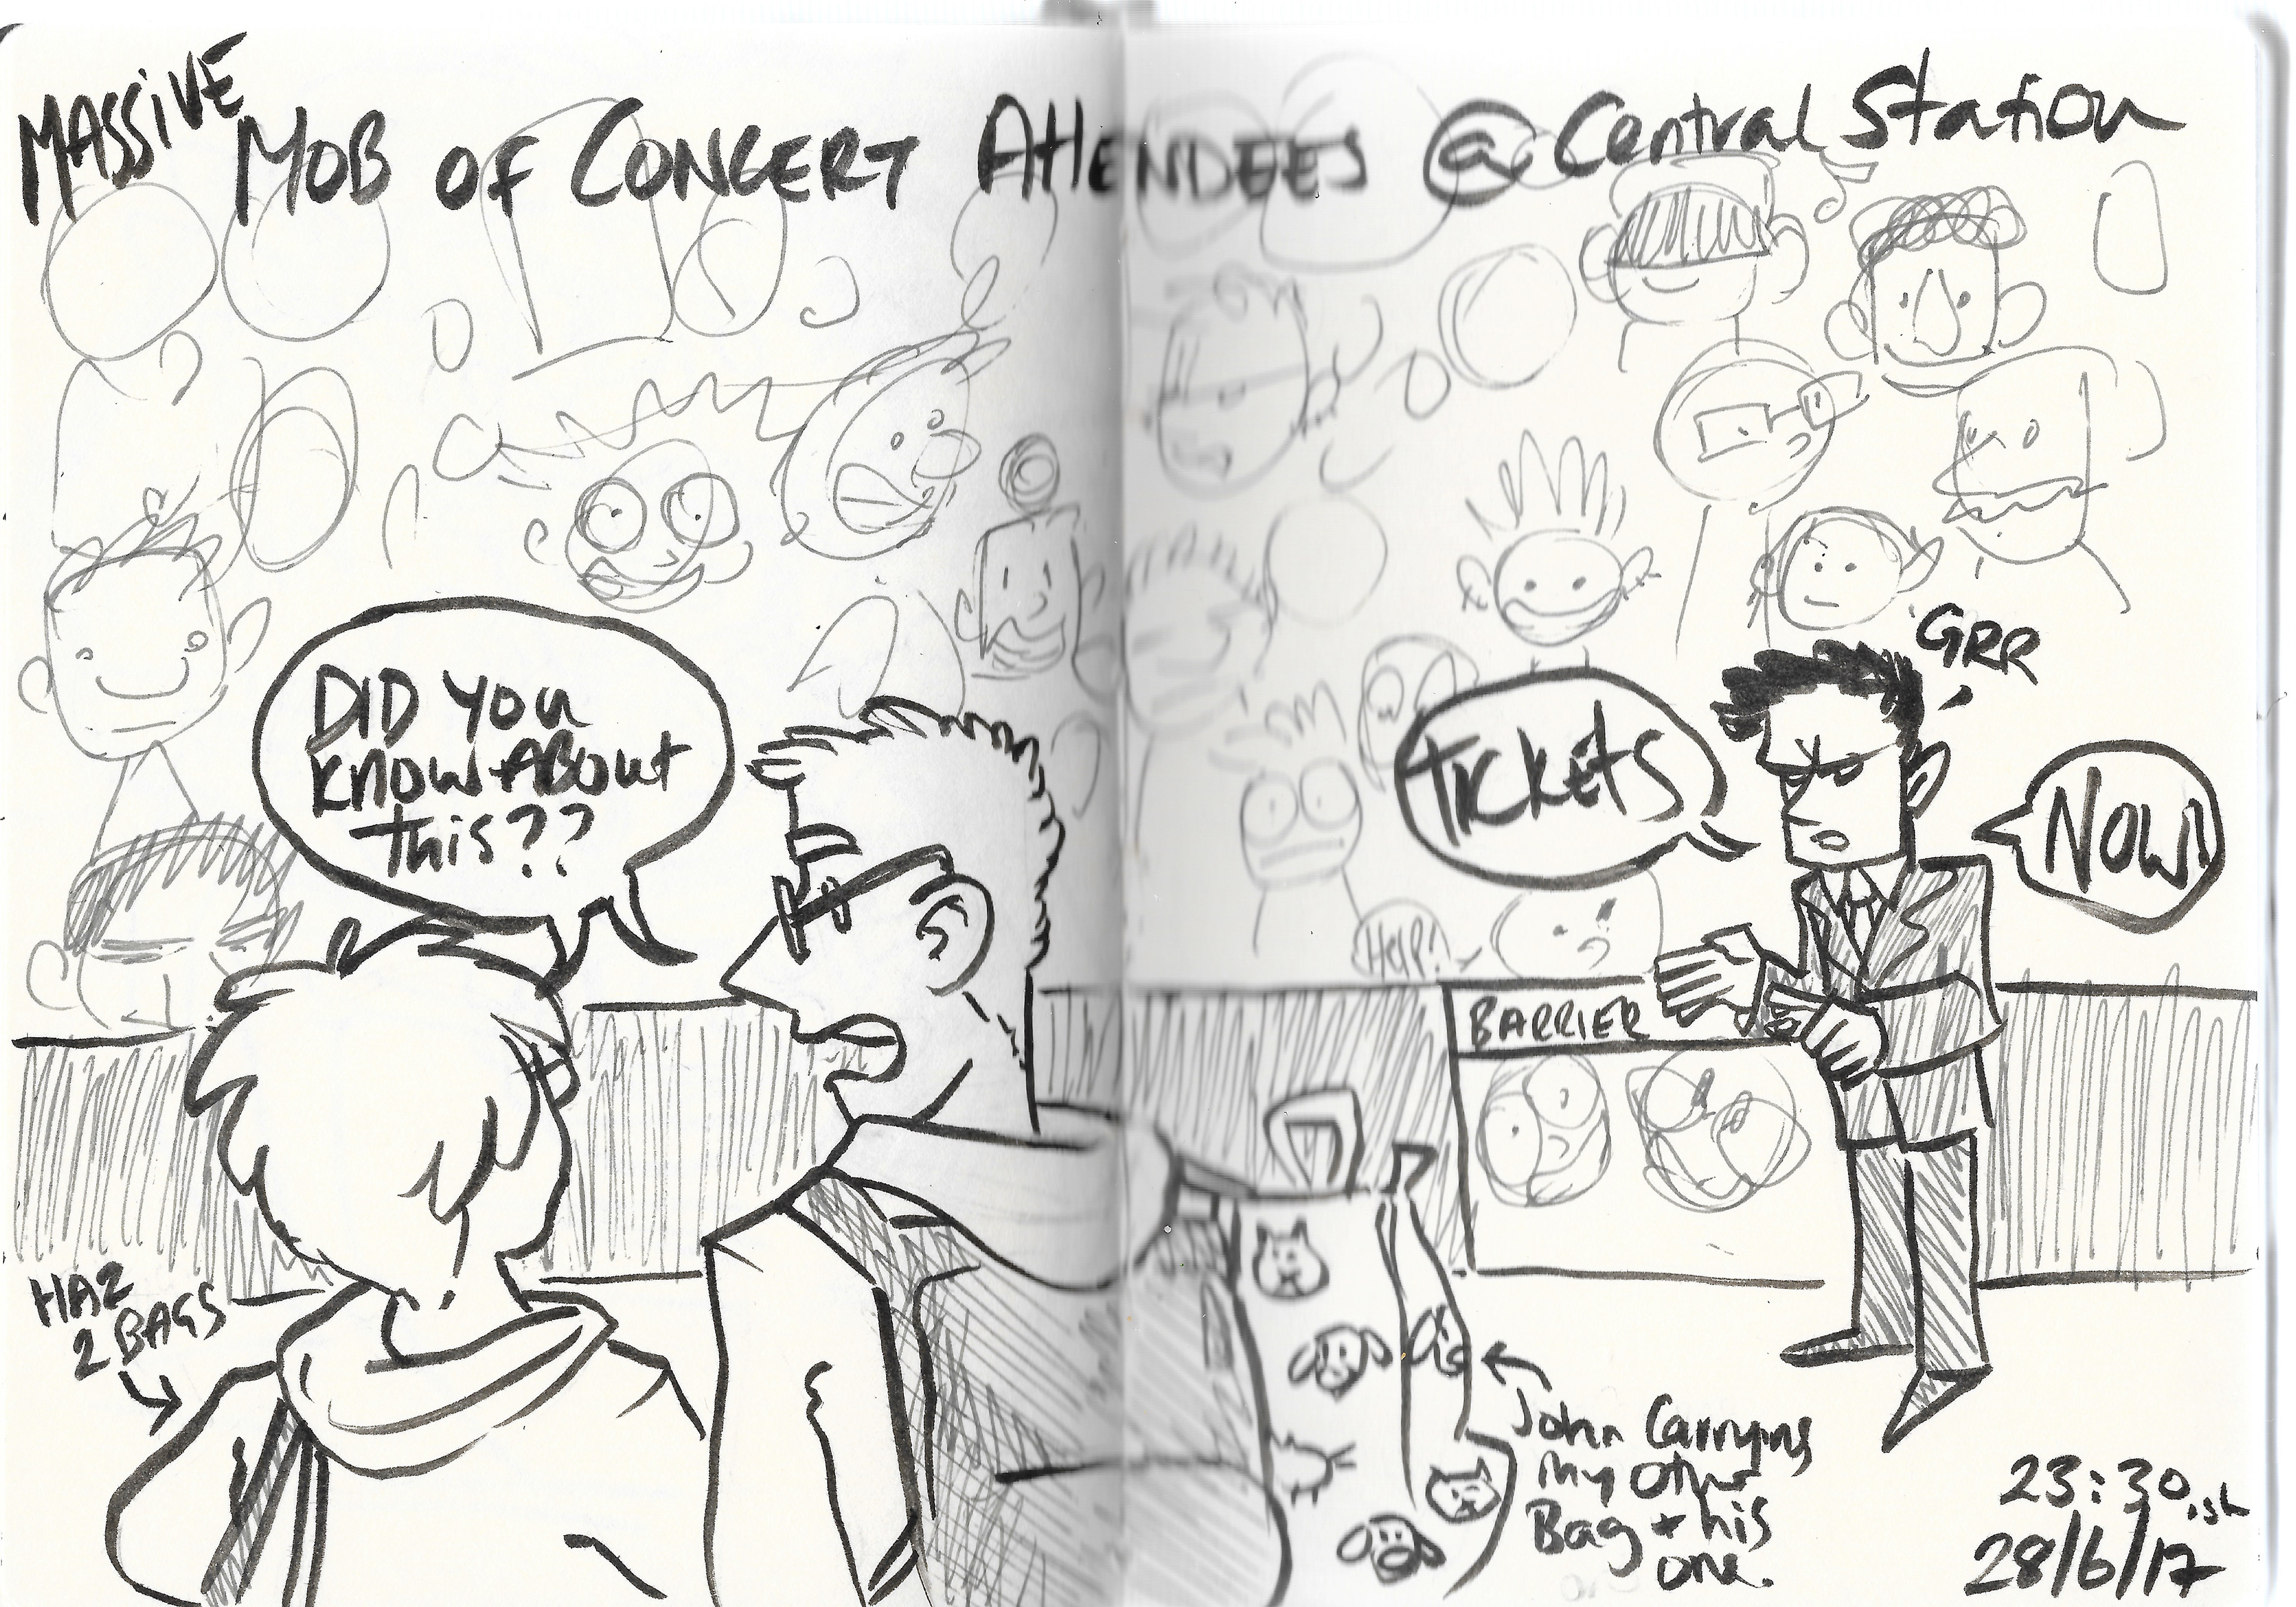 MASSiVE
MOB OF CONCERT AttENDEES @ Central Station
DID You
know ABout
this??
GRR
tickets
NOW!
HELP!
BARRIER
HAZ
2 BAGS
John Carrying
my other
Bag + his
one.
23:30ish
28/6/17